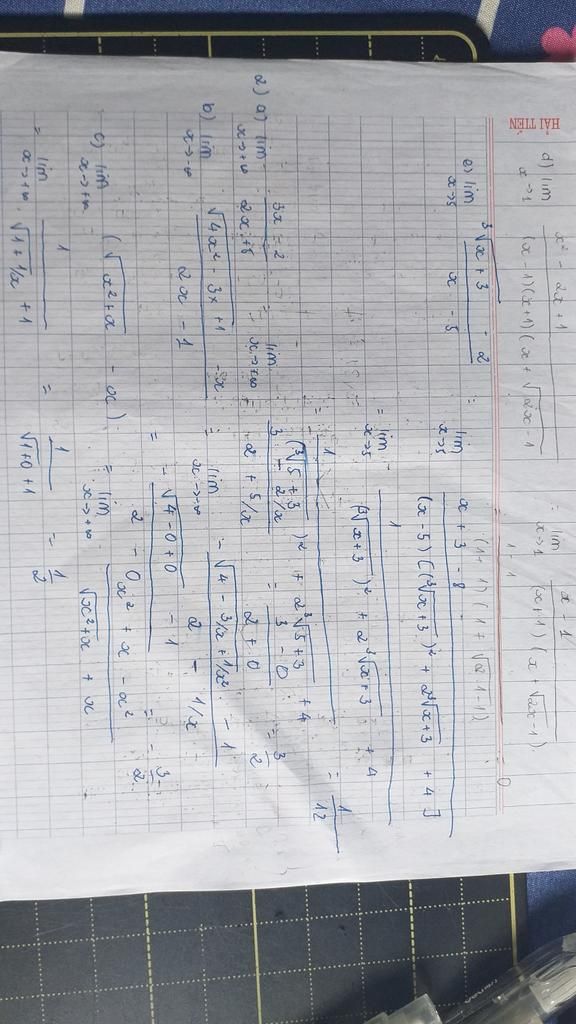 HẢI TIẾN
d) lim x→1 (x² - 2x + 1) / ((x-1)(x+1)(x + √(2x-1))) = lim x→1 (x-1) / ((x+1)(x + √(2x-1)))
= (1-1) / ((1+1)(1 + √(2.1-1))) = 0
e) lim x→5 (∛(x+3) - 2) / (x - 5) = lim x→5 (x+3-8) / ((x-5)[(∛(x+3))² + 2∛(x+3) + 4])
= lim x→5 1 / ((∛(x+3))² + 2∛(x+3) + 4)
= 1 / ((∛(5+3))² + 2∛(5+3) + 4) = 1/12
2) a) lim x→+∞ (3x - 2) / (2x + 5) = lim x→+∞ (3 - 2/x) / (2 + 5/x) = (3 - 0) / (2 + 0) = 3/2
b) lim x→-∞ (√(4x² - 3x + 1) - x) / (2x - 1) = lim x→-∞ (-√(4 - 3/x + 1/x²) - 1) / (2 - 1/x)
= (-√(4-0+0) - 1) / (2 - 0) = -3/2
c) lim x→+∞ (√(x²+x) - x) = lim x→+∞ (x² + x - x²) / (√(x²+x) + x)
= lim x→+∞ 1 / (√(1+1/x) + 1) = 1 / (√(1+0) + 1) = 1/2